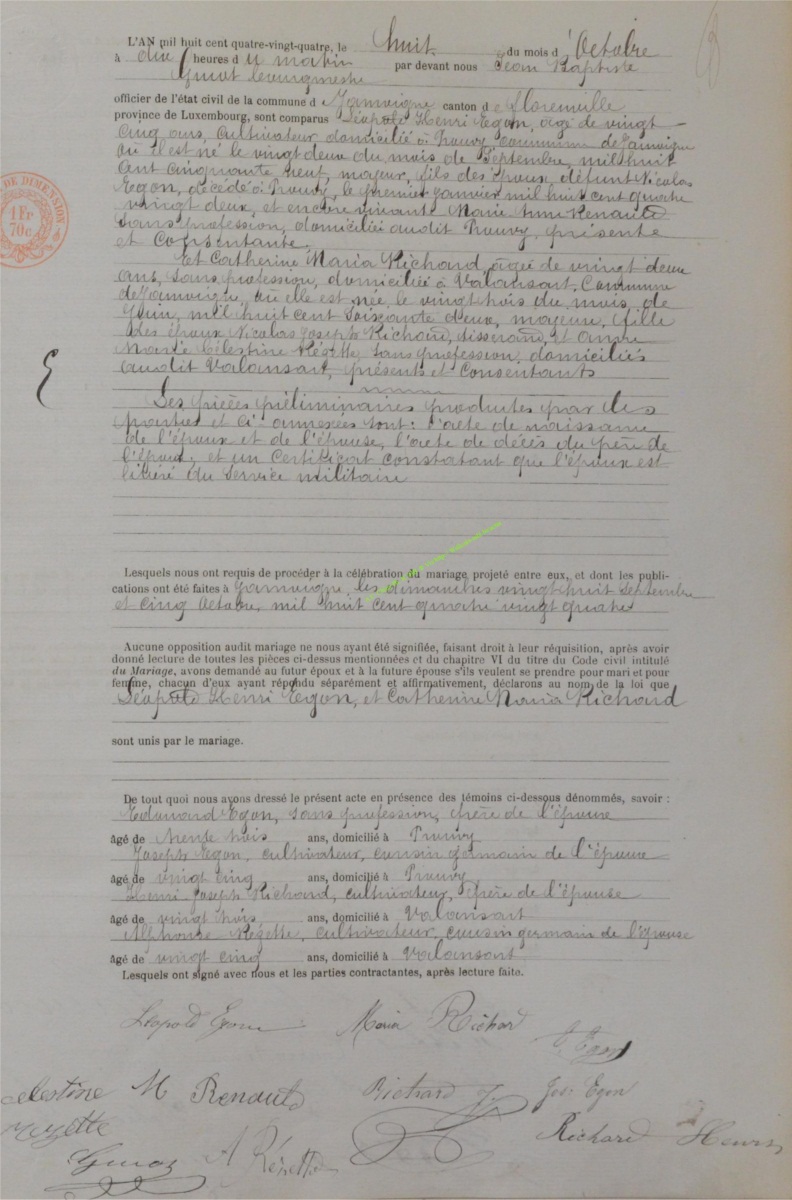 L'AN mil huit cent quatre-vingt-quatre, le huit du mois d'Octobre
à dix heures du matin par devant nous Jean Baptiste
bourgmestre
officier de l'état civil de la commune de Jamoigne canton de Florenville
province de Luxembourg, sont comparus Léopold Henri Egon, âgé de vingt-
cinq ans, cultivateur domicilié à Prouvy commune de Jamoigne
où il est né le vingt deux du mois de Septembre, mil huit
cent cinquante neuf, majeur, fils des époux, défunt Nicolas
Egon, décédé à Prouvy, le premier janvier mil huit cent quatre
vingt deux, et encore vivante Marie Anne Renauld
sans profession, domiciliée audit Prouvy, présente
et consentante.
Et Catherine Maria Richard, âgée de vingt deux
ans, sans profession, domiciliée à Valansart, Commune
de Jamoigne, où elle est née, le vingt trois du mois, de
Juin, mil huit cent soixante deux, majeure, fille
des époux Nicolas Joseph Richard, tisserand, et Anne
Marie Célestine Résette, sans profession, domiciliés
audit Valansart, présents et consentants
Les pièces préliminaires produites par les
parties et ci-annexées sont: l'acte de naissance
de l'époux et de l'épouse, l'acte de décès du père de
l'époux, et un certificat constatant que l'époux est
libéré du service militaire
Lesquels nous ont requis de procéder à la célébration du mariage projeté entre eux, et dont les publi-
cations ont été faites à Jamoigne, les dimanches vingt huit Septembre
et cinq Octobre, mil huit cent quatre vingt quatre
Aucune opposition audit mariage ne nous ayant été signifiée, faisant droit à leur réquisition, après avoir
donné lecture de toutes les pièces ci-dessus mentionnées et du chapitre VI du titre du Code civil intitulé
du Mariage, avons demandé au futur époux et à la future épouse s'ils veulent se prendre pour mari et pour
femme, chacun d'eux ayant répondu séparément et affirmativement, déclarons au nom de la loi que
Léopold Henri Egon, et Catherine Maria Richard
sont unis par le mariage.
De tout quoi nous avons dressé le présent acte en présence des témoins ci-dessous dénommés, savoir :
Edouard Egon, sans profession, frère de l'époux
âgé de trente trois ans, domicilié à Prouvy
Joseph Egon, cultivateur, cousin germain de l'époux
âgé de vingt cinq ans, domicilié à Prouvy
Henri Joseph Richard, cultivateur, frère de l'épouse
âgé de vingt trois ans, domicilié à Valansart
Alphonse Résette, cultivateur, cousin germain de l'épouse
âgé de vingt cinq ans, domicilié à Valansart
Lesquels ont signé avec nous et les parties contractantes, après lecture faite.
Léopold Egon Maria Richard
E Egon
Célestine M Renauld Richard J. Jos. Egon
Rezette Richard Henri
A Résette
DE DIMENSION
1 Fr
70c